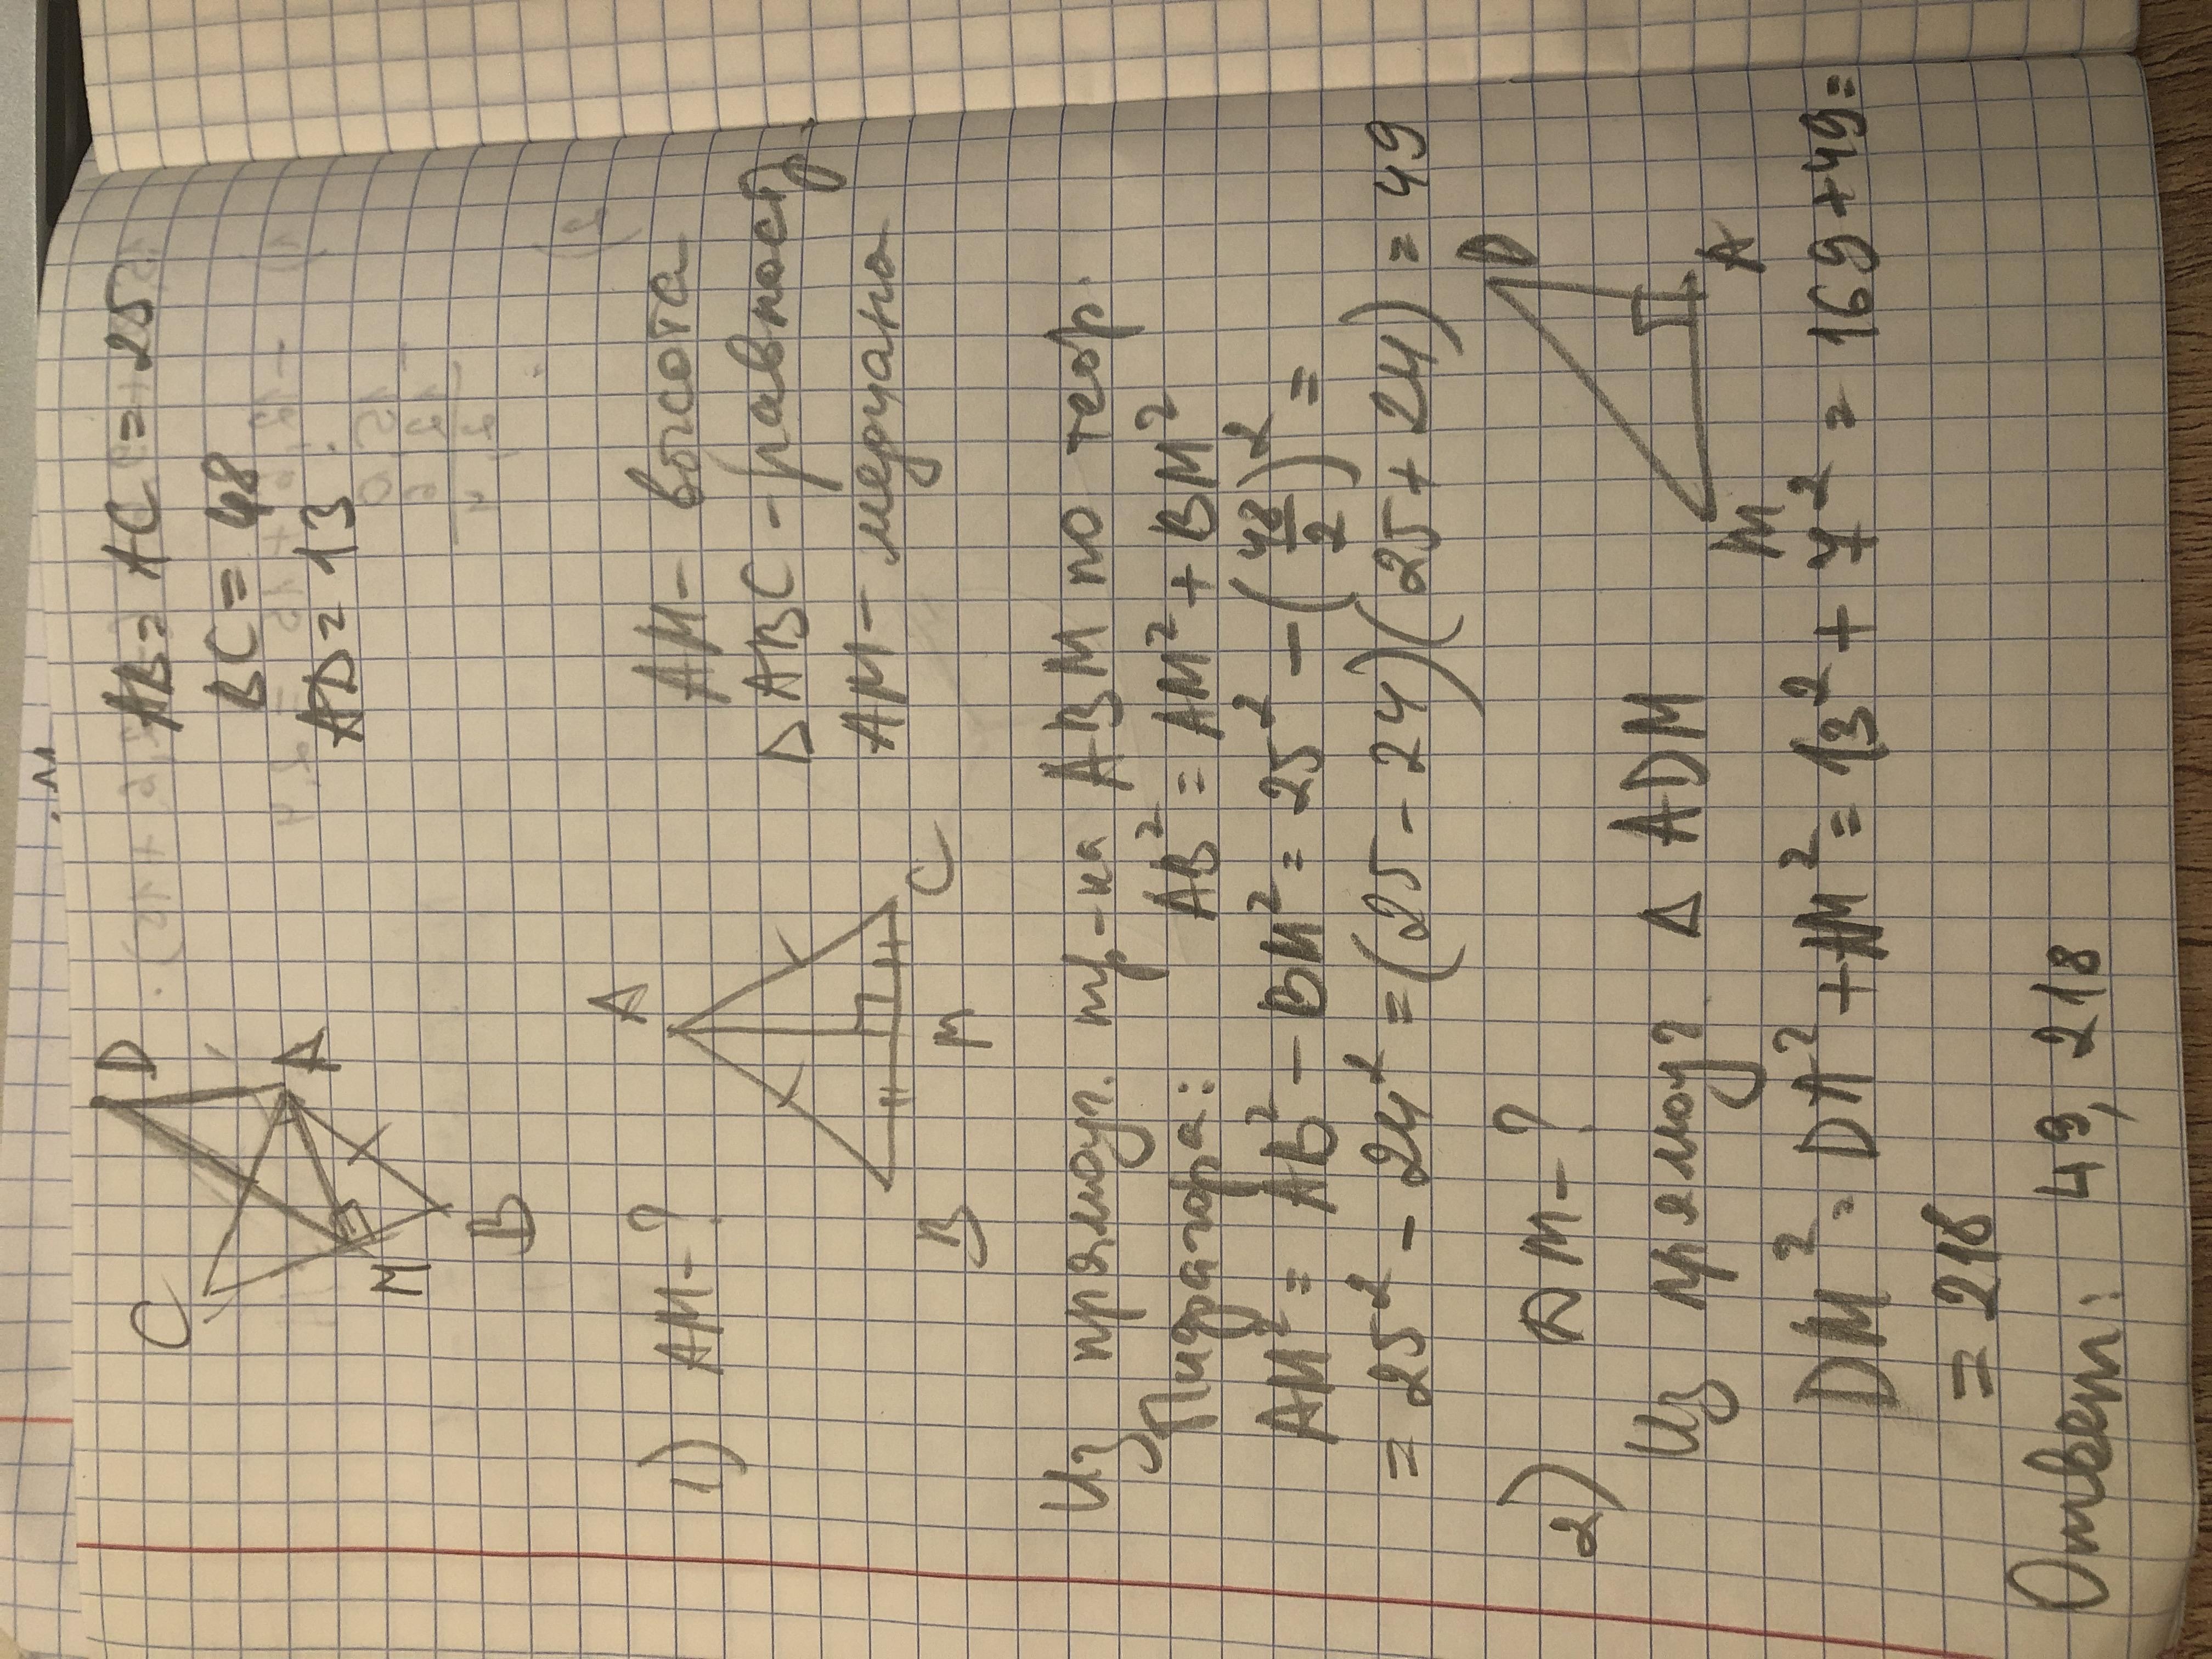 D
C
A
M
B
AB = AC = 25
BC = 48
AD = 13
1) AM - ?
A
B
M
C
AM - высота
△ABC - равност
AM - медиана
Из прямоуг. тр-ка ABM по теор.
Пифагора: AB² = AM² + BM²
AM² = AB² - BM² = 25² - (48/2)² =
= 25² - 24² = (25 - 24)(25 + 24) = 49
2) DM - ?
D
M
A
Из прямоуг. △ ADM
DM² = DA² + AM² = 13² + 7² = 169 + 49 =
= 218
Ответ: 49, 218